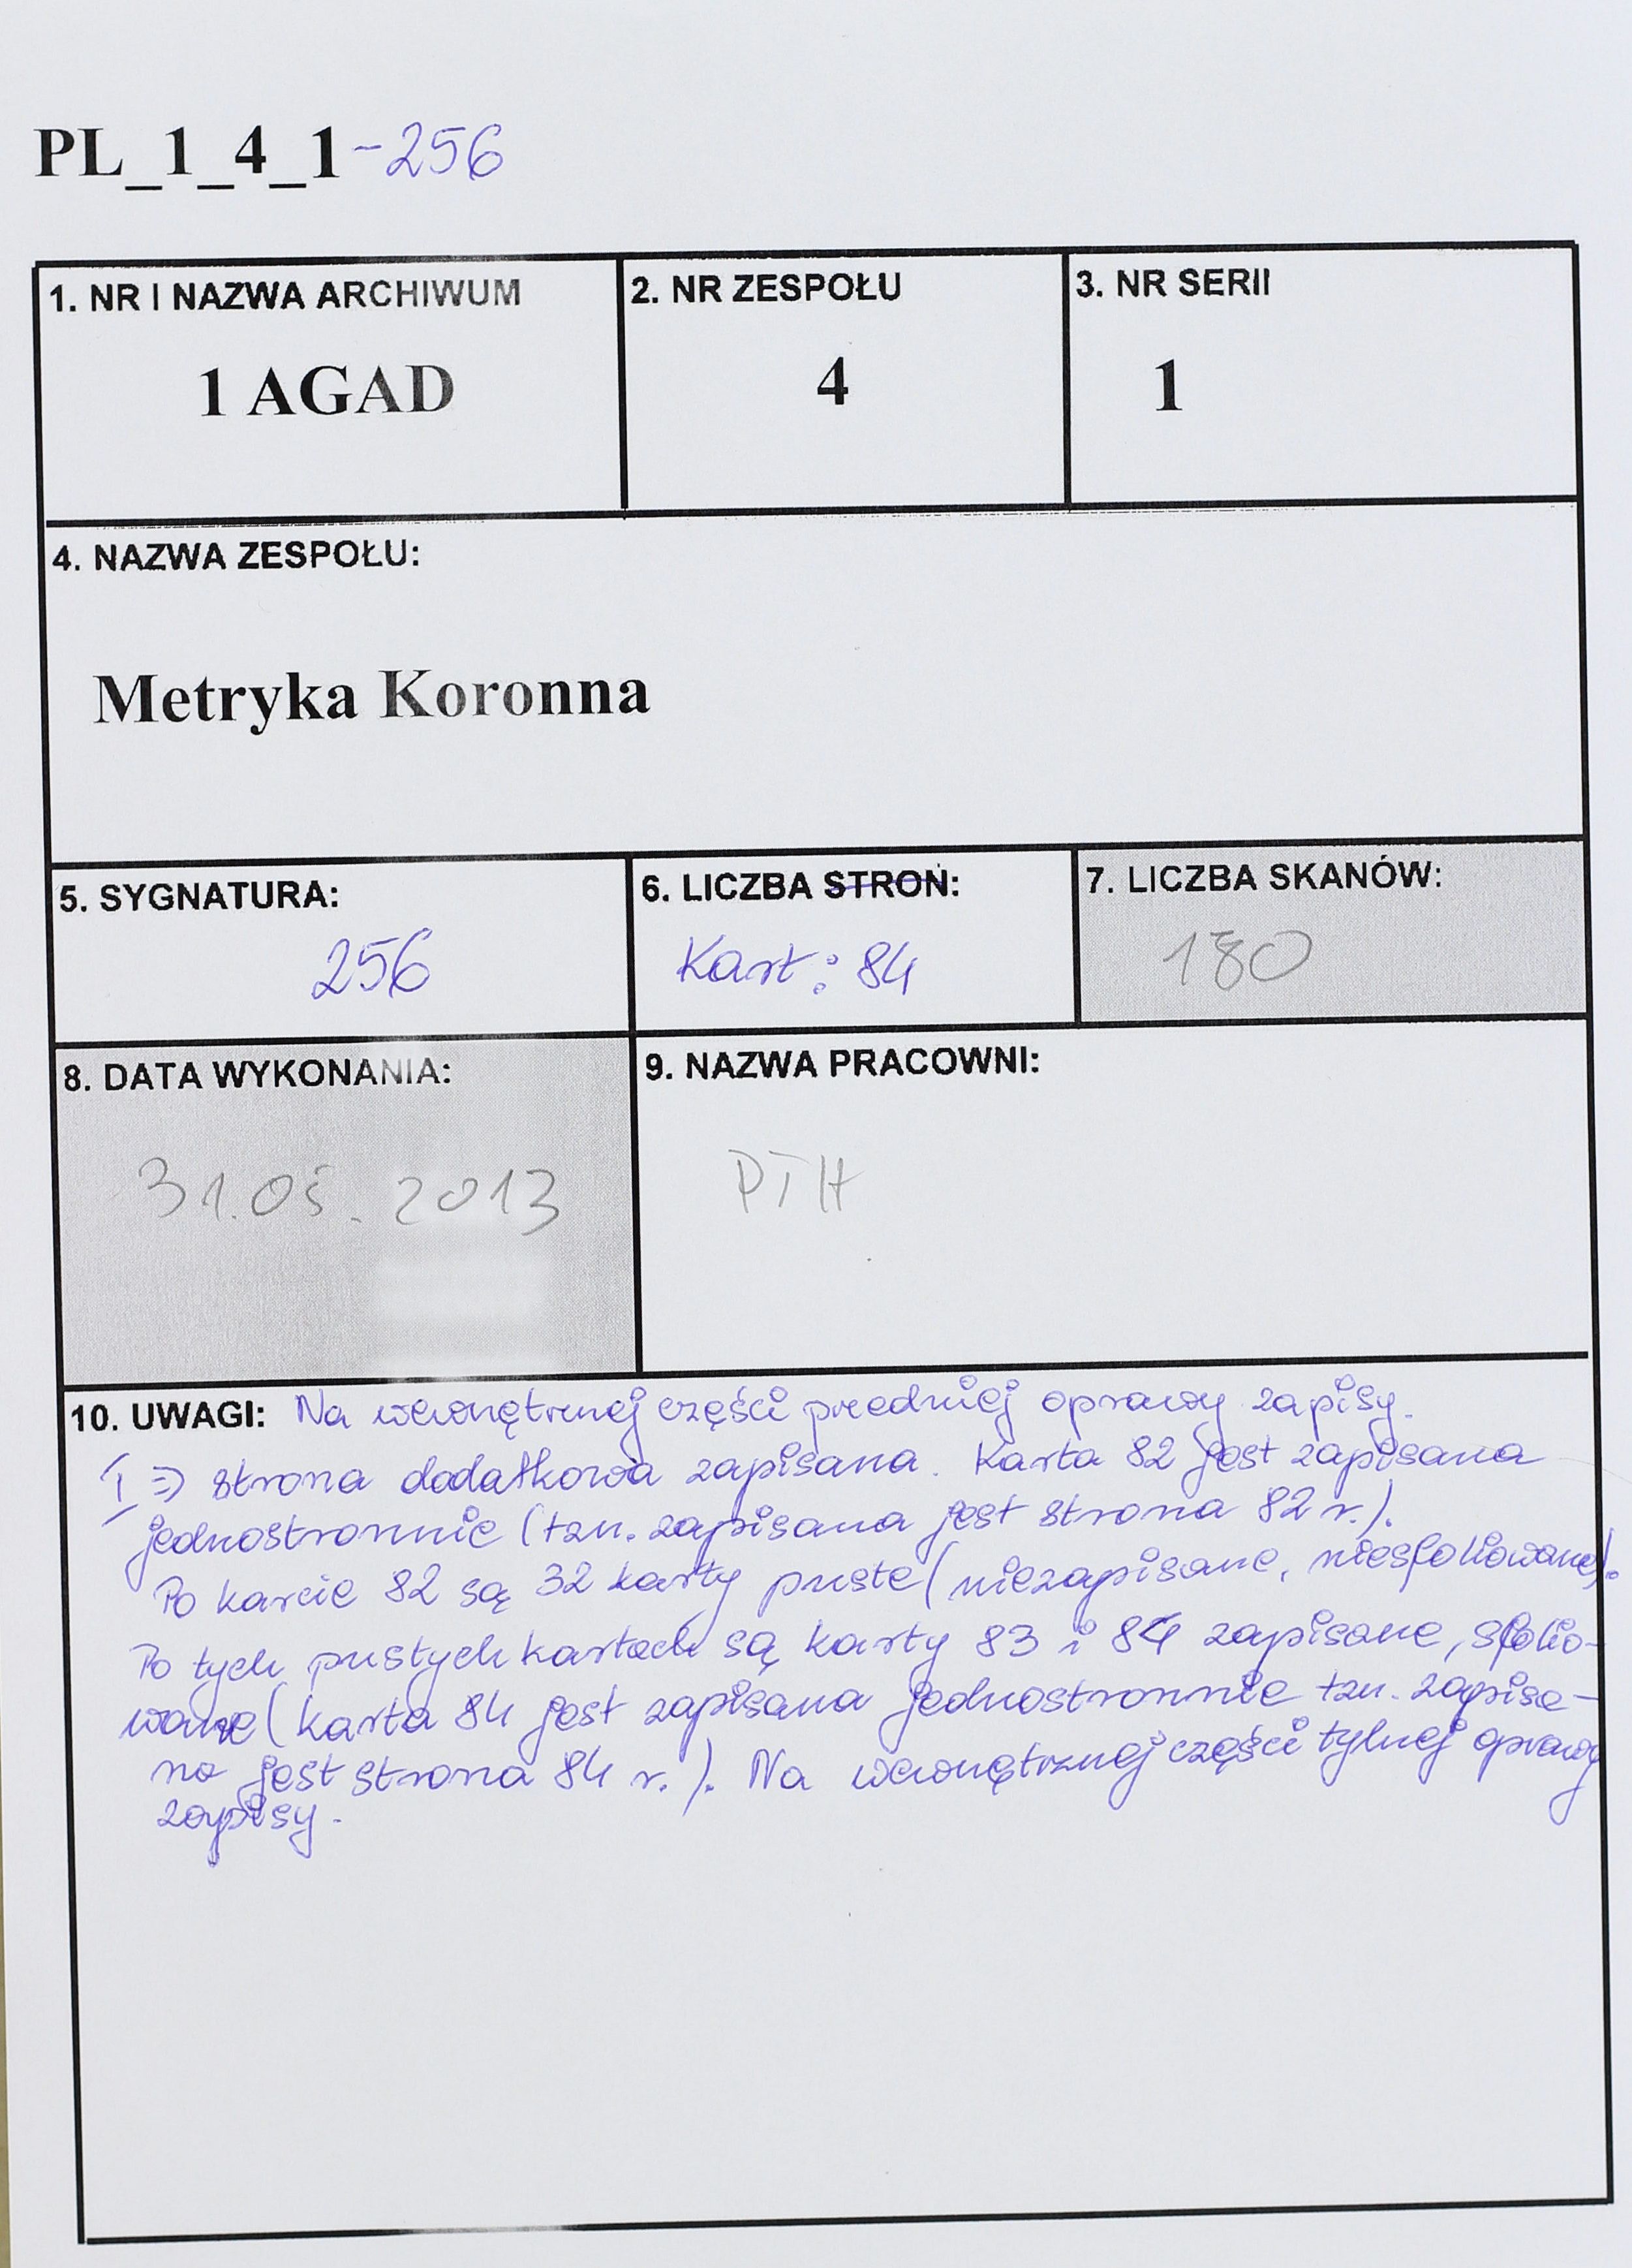 PL_1_4_1-256
1. NR I NAZWA ARCHIWUM
1 AGAD
2. NR ZESPOŁU
4
3. NR SERII
1
4. NAZWA ZESPOŁU:
Metryka Koronna
5. SYGNATURA:
256
6. LICZBA STRON:
Kart: 84
7. LICZBA SKANÓW:
180
8. DATA WYKONANIA:
31.05.2013
9. NAZWA PRACOWNI:
PTH
10. UWAGI: Na wewnętrznej części przedniej oprawy zapisy.
I => strona dodatkowa zapisana. Karta 82 jest zapisana
jednostronnie (tzn. zapisana jest strona 82 r.).
Po karcie 82 są 32 karty puste (niezapisane, niesfoliowane).
Po tych pustych kartach są karty 83 i 84 zapisane, sfolio-
wane (karta 84 jest zapisana jednostronnie tzn. zapisa-
na jest strona 84 r.). Na wewnętrznej części tylnej oprawy
zapisy.